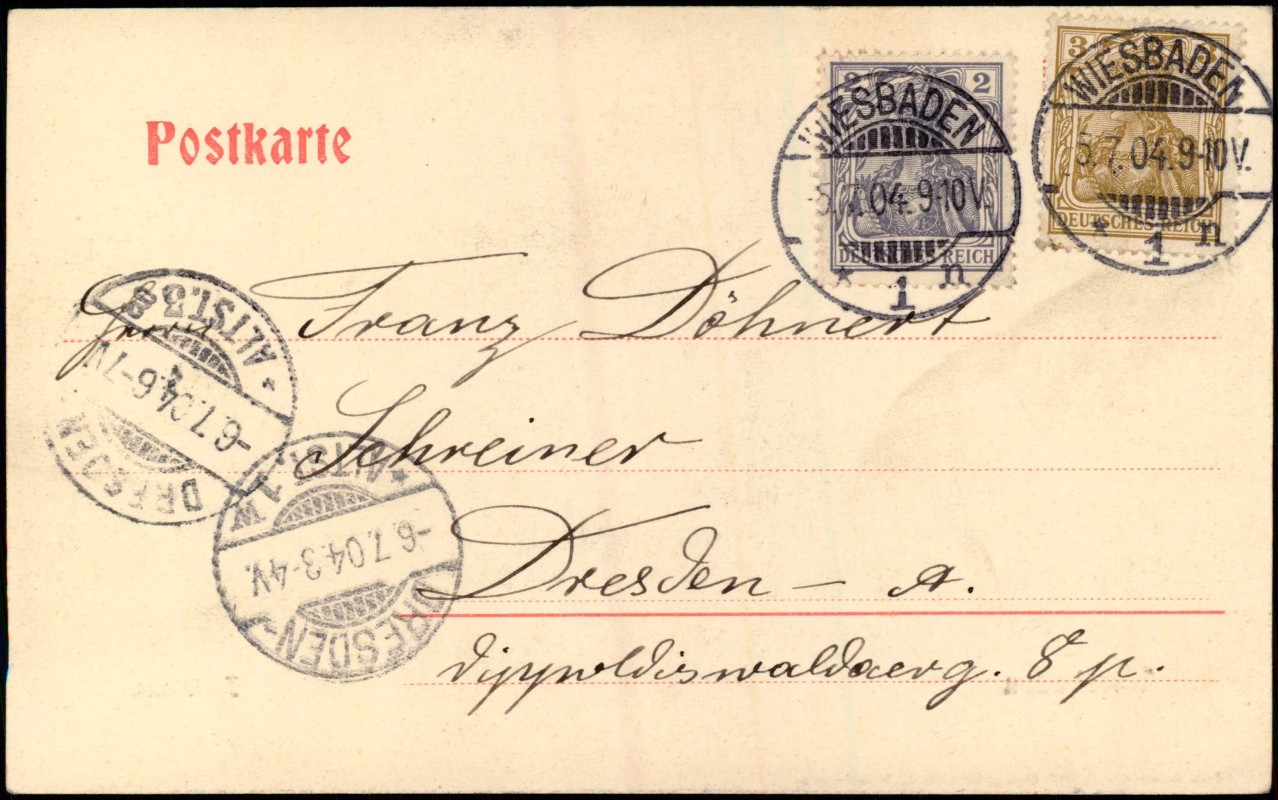 Postkarte
2 2
DEUTSCHES REICH
WIESBADEN
5.7.04.9-10V.
* 1 n
3 3
DEUTSCHES REICH
WIESBADEN
5.7.04.9-10V.
* 1 n
Herrn Franz Döhnert
Schreiner
Dresden - A.
Dippoldiswaldaerg. 8 p.
DRESDEN
-6.7.04.6-7V.
* ALTST. 3
DRESDEN-
-6.7.04.3-4V.
* ALTST. 1 W